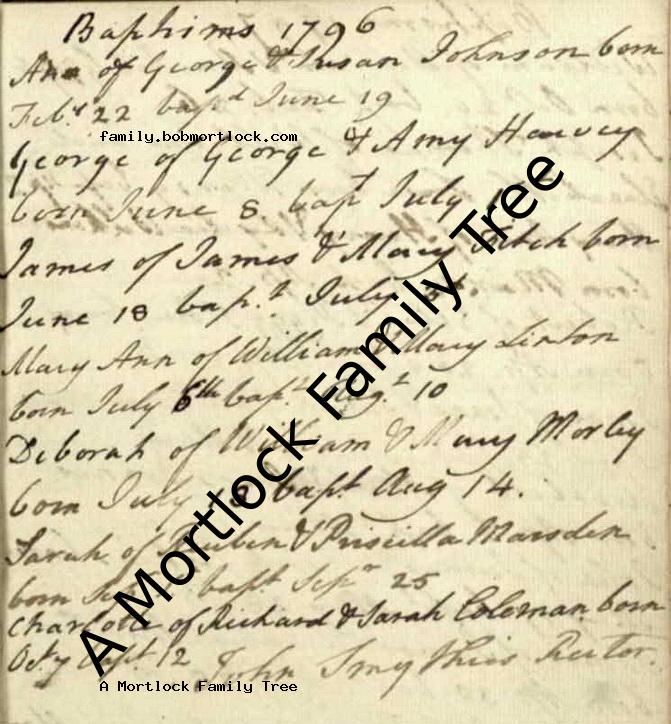 Baptisms 1796
Ann of George & Susan Johnson born
Feb.y 22 bap.d June 19
family.bobmortlock.com
George of George & Amy Harvey
born June 8 bap.t July
James of James & Mary born
June 18 bap.t July
Mary Ann of William & Mary Linton
born July 6th bap.t Aug.t 10
Deborah of William & Mary Morley
born July bap.t Aug 14.
Sarah of Reuben & Priscilla Marsden
born bap.t Sep.r 25
Charlotte of Richard & Sarah Coleman born
bap.t 12 John Smythies Rector.
A Mortlock Family Tree
A Mortlock Family Tree